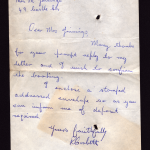 Dear Mrs Jennings,
Many thanks
for your prompt reply to my
letter and I wish to confirm
the booking.
I enclose a stamped
addressed envelope so as you
can inform me of deposit
required
Yours faithfully